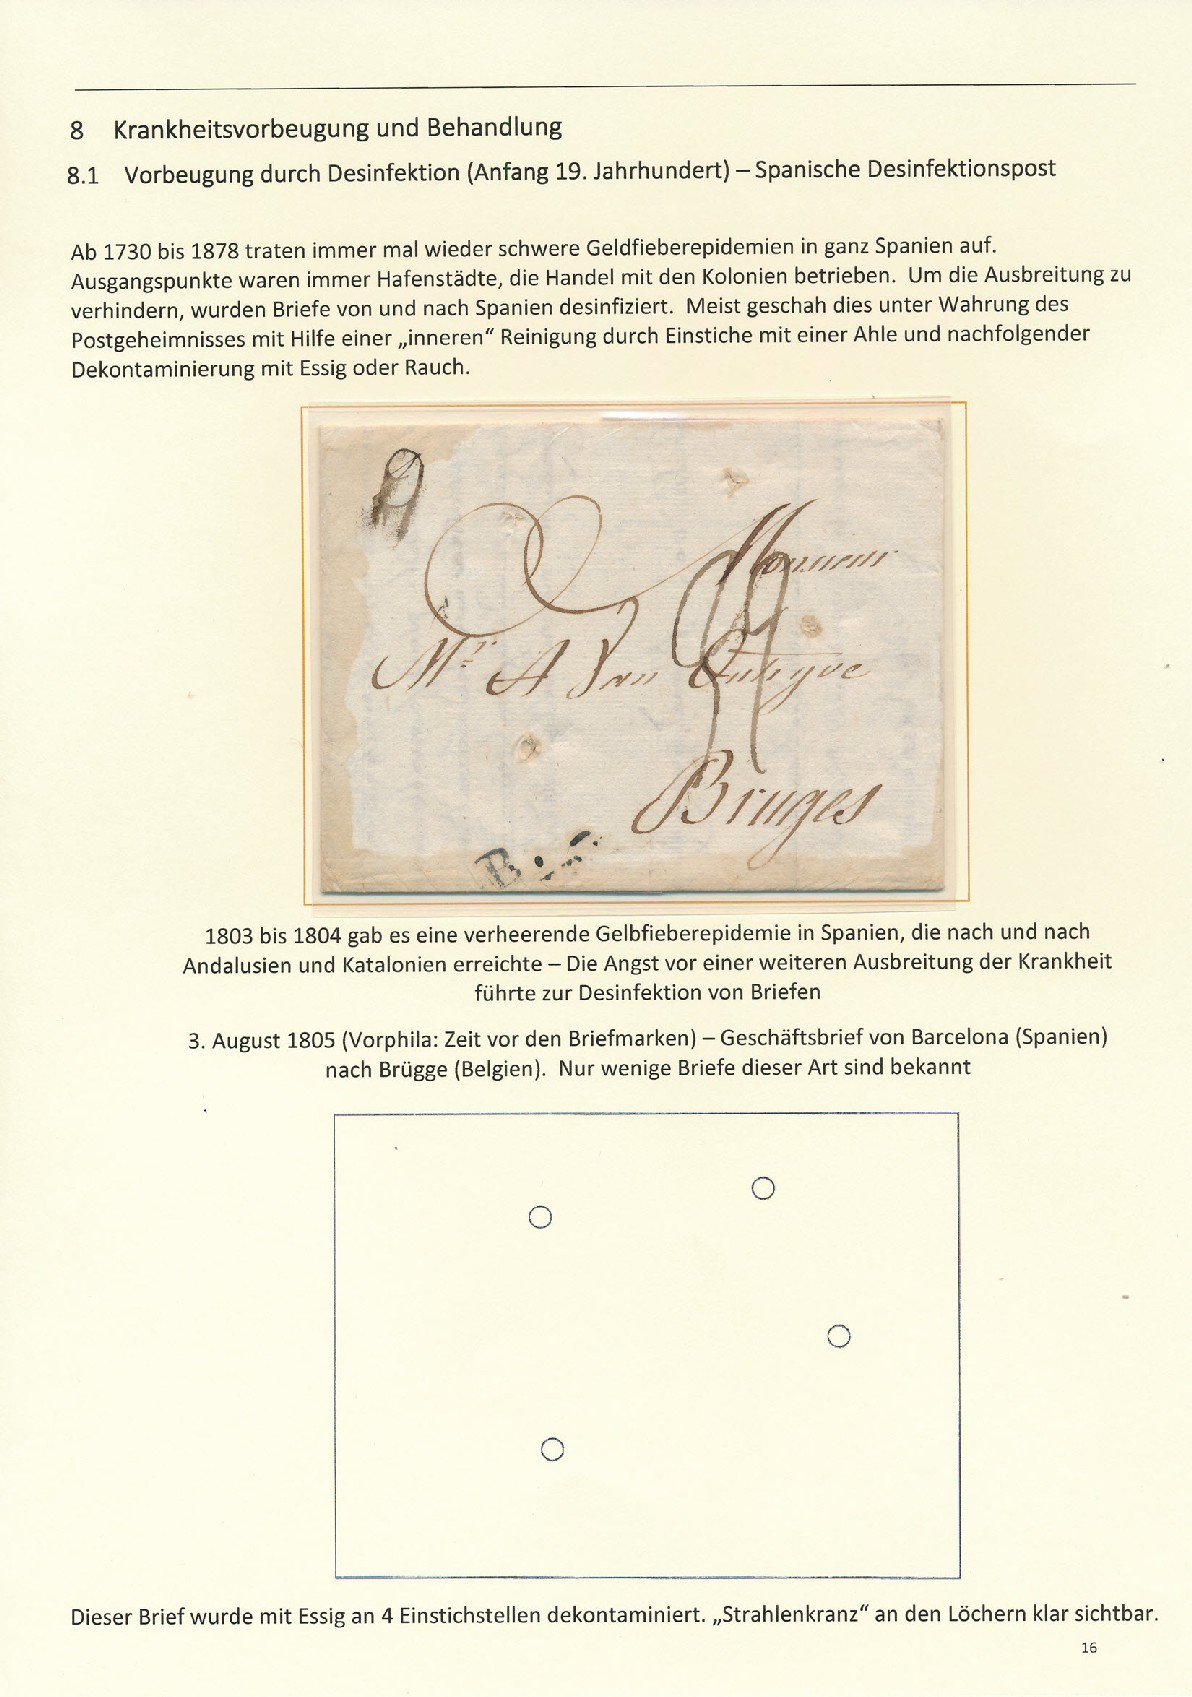 8 Krankheitsvorbeugung und Behandlung
8.1 Vorbeugung durch Desinfektion (Anfang 19. Jahrhundert) – Spanische Desinfektionspost
Ab 1730 bis 1878 traten immer mal wieder schwere Geldfieberepidemien in ganz Spanien auf.
Ausgangspunkte waren immer Hafenstädte, die Handel mit den Kolonien betrieben. Um die Ausbreitung zu
verhindern, wurden Briefe von und nach Spanien desinfiziert. Meist geschah dies unter Wahrung des
Postgeheimnisses mit Hilfe einer „inneren“ Reinigung durch Einstiche mit einer Ahle und nachfolgender
Dekontaminierung mit Essig oder Rauch.
Monsieur
Mr A Van
Bruges
B
1803 bis 1804 gab es eine verheerende Gelbfieberepidemie in Spanien, die nach und nach
Andalusien und Katalonien erreichte – Die Angst vor einer weiteren Ausbreitung der Krankheit
führte zur Desinfektion von Briefen
3. August 1805 (Vorphila: Zeit vor den Briefmarken) – Geschäftsbrief von Barcelona (Spanien)
nach Brügge (Belgien). Nur wenige Briefe dieser Art sind bekannt
Dieser Brief wurde mit Essig an 4 Einstichstellen dekontaminiert. „Strahlenkranz“ an den Löchern klar sichtbar.
16